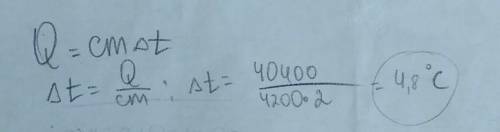 Q = cmΔt
Δt = Q/cm ; Δt = 40400/4200•2 = 4,8°C